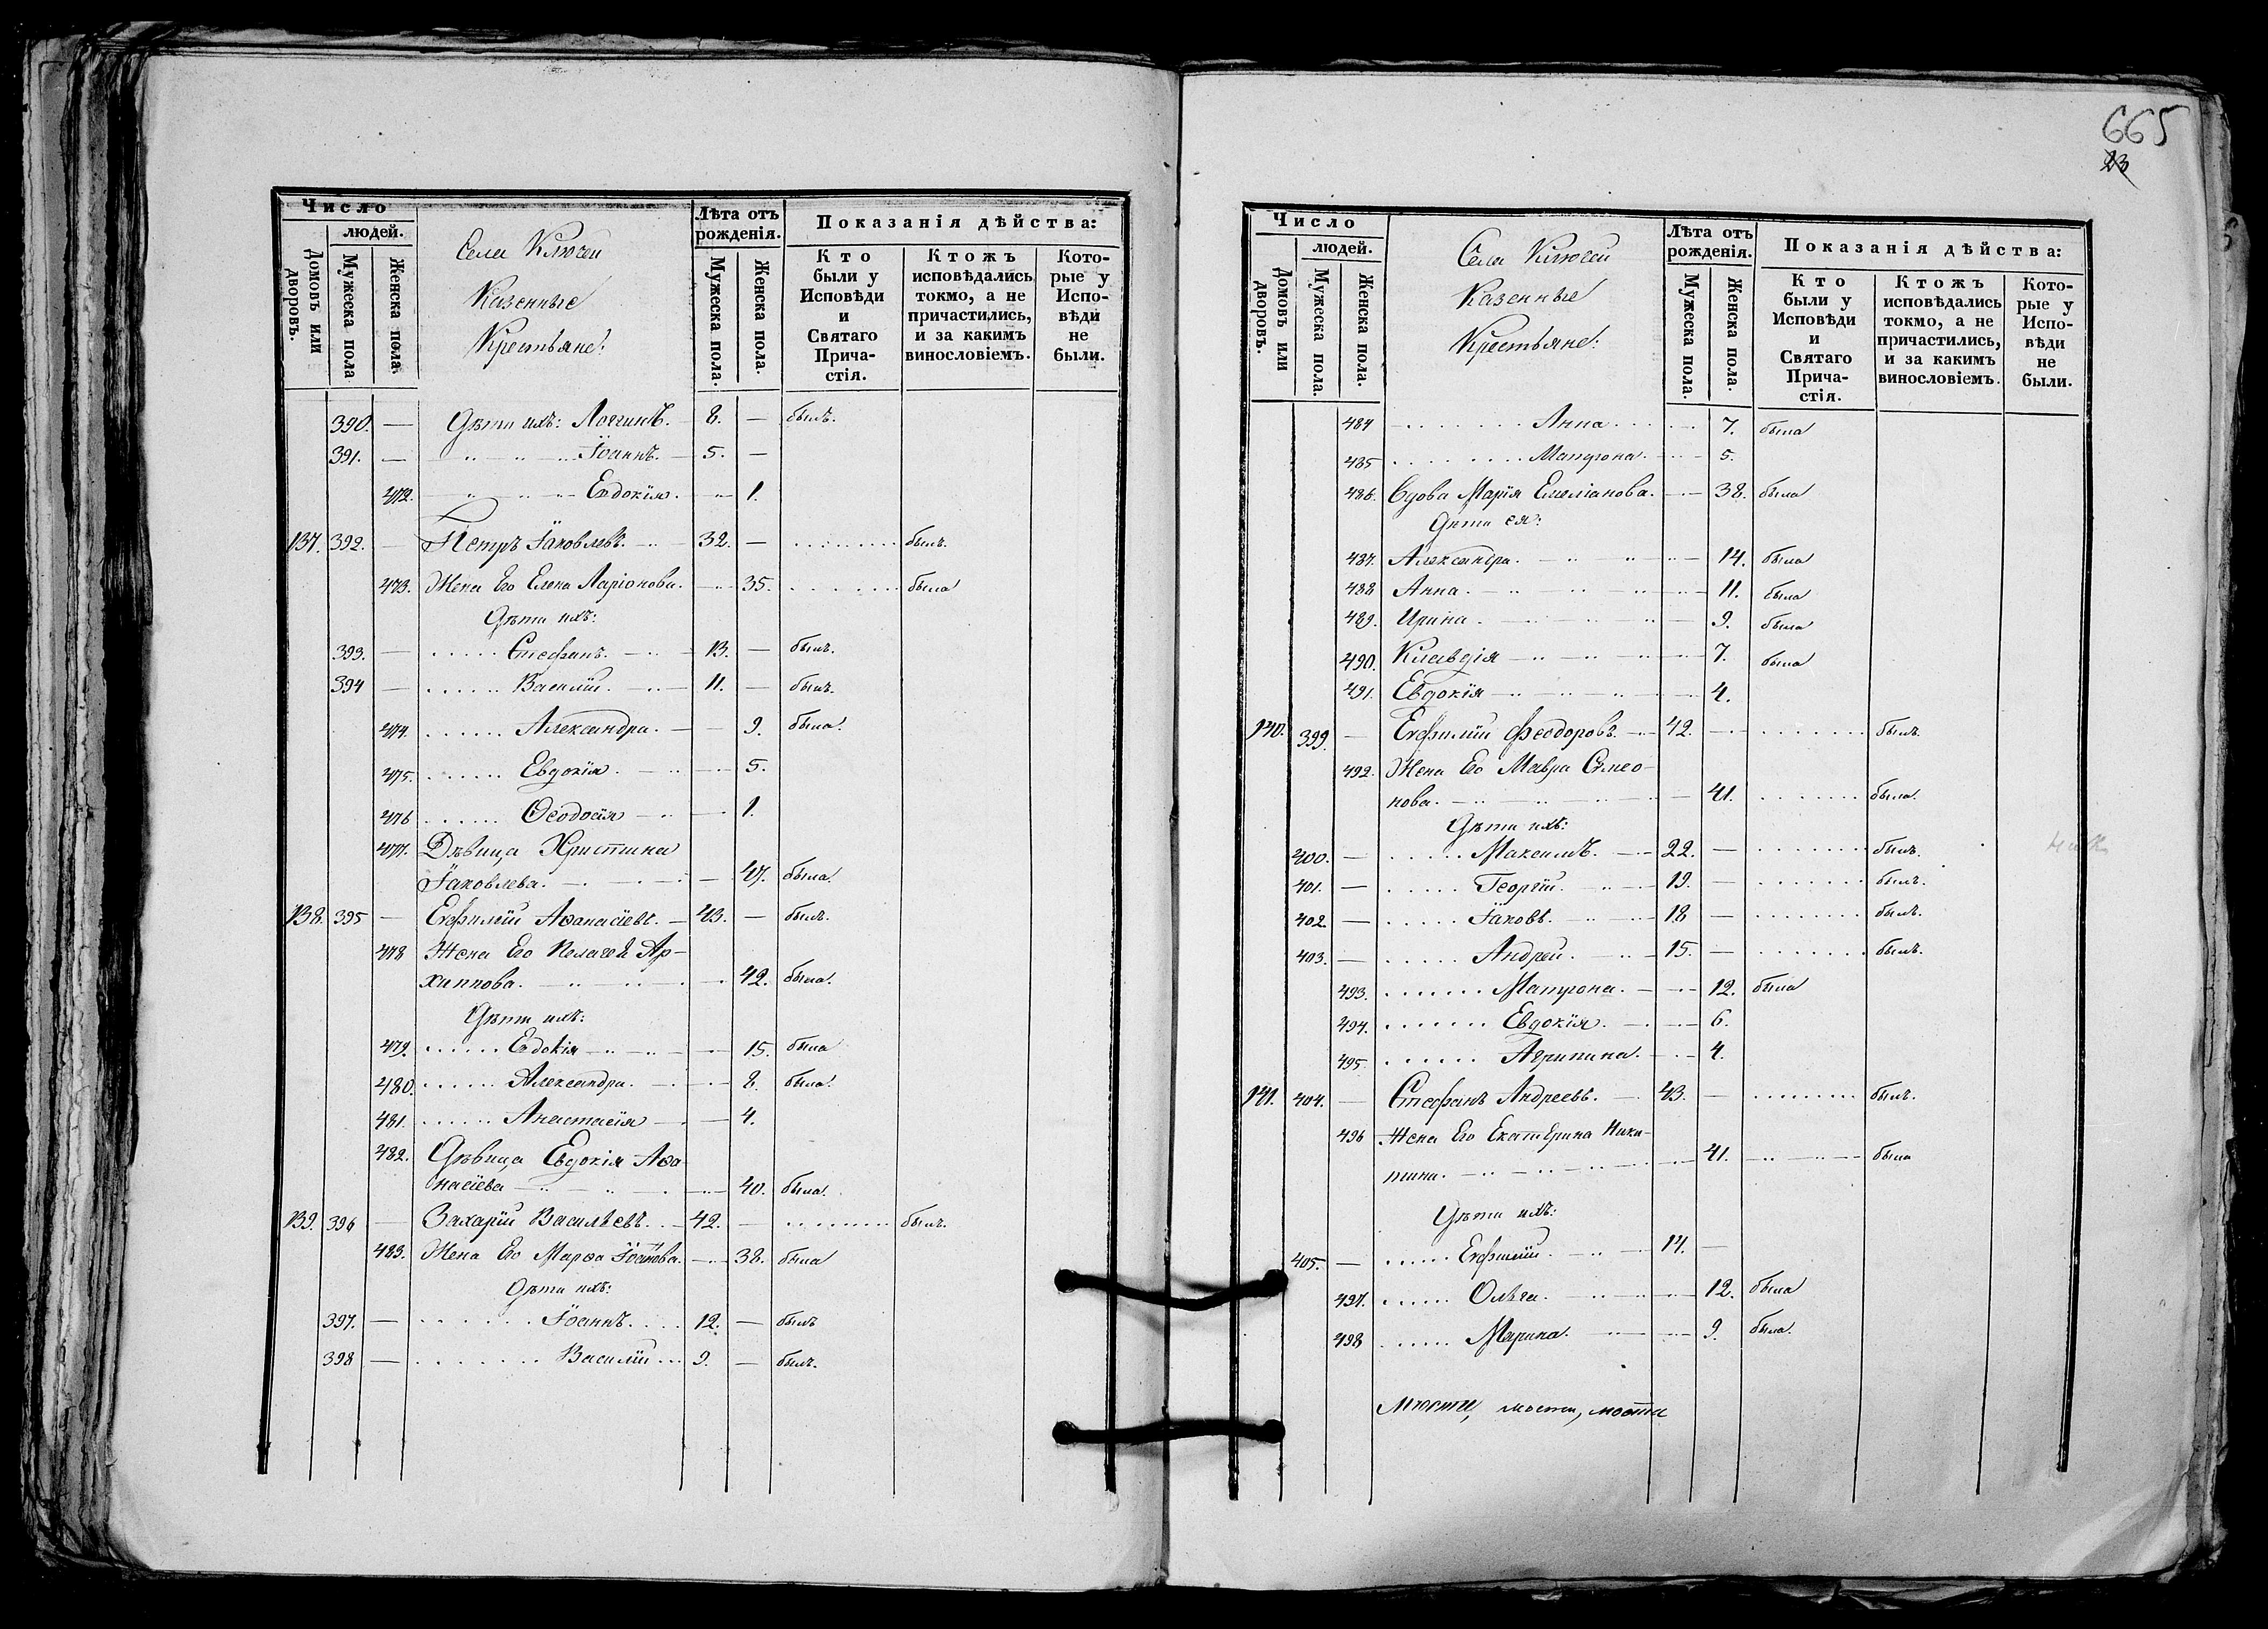 Число
людей.
Домовъ или дворовъ.
Мужеска пола
Женска пола.
Села Ключей
Казенные
Крестьяне:
Лѣта отъ рожденія.
Мужеска пола.
Женска пола.
Показанія дѣйства:
Кто были у Исповѣди и Святаго Прича-стія.
Ктожъ исповѣдались токмо, а не причастились, и за какимъ винословіемъ.
Кото-рые у Испо-вѣди не были.
390. — Дѣти ихъ: Логгинъ. 8. — былъ.
391. — Іоаннъ. 5. —
472. Евдокія. 1.
137. 392. — Петръ Іаковлевъ. 32. — былъ.
473. Жена Его Елена Ларіонова. 35. была
Дѣти ихъ:
393. — Стефанъ. 13. — былъ.
394 — Василій. 11. — былъ.
474. Александра. 9. была.
475. Евдокія. 5.
476 Ѳеодосія 1.
477. Дѣвица Христина
Іаковлева. 47. была.
138. 395 — Евфимій Аѳанасіевъ. 43. — былъ.
478 Жена Его Пелагея Ар-
хиппова. 42. была.
Дѣти ихъ:
479. Евдокія 15. была
480. Александра. 8. была.
481. Анастасія 4.
482. Дѣвица Евдокія Аѳа
насіева 40. была.
139. 396 — Захарій Васильевъ. 42. — былъ.
483. Жена Его Марѳа Іоаннова. 38. была
Дѣти ихъ:
397. — Іоаннъ. 12. — былъ
398 — Василій 9. — былъ.
665
23
Число
людей.
Домовъ или дворовъ.
Мужеска пола
Женска пола.
Села Ключей
Казенные
Крестьяне:
Лѣта отъ рожденія.
Мужеска пола.
Женска пола.
Показанія дѣйства:
Кто были у Исповѣди и Святаго Прича-стія.
Ктожъ исповѣдались токмо, а не причастились, и за какимъ винословіемъ.
Кото-рые у Испо-вѣди не были.
484 Анна 7. была
485 Матрона. 5.
486. Вдова Марія Емеліанова. 38. была
Дѣти ея:
487. Александра. 14. была
488 Анна. 11. была
489. Ирина. 9. была
490. Клавдія 7. была
491. Евдокія 4.
140. 399. — Евфимій Феодоровъ. 42. былъ.
492. Жена Его Мавра Симео-
нова. 41. была.
Дѣти ихъ:
400. — Максимъ. 22. — былъ.
401. — Георгій. 19. — былъ.
402. — Іаковъ. 18 — былъ.
403. — Андрей. 15. — былъ.
493. Матрона. 12. была
494. Евдокія. 6.
495. Агрипина. 4.
141. 404. — Стефанъ Андреевъ. 43. — былъ.
496 Жена Его Екатерина Ники-
тина. 41. была
Дѣти ихъ:
405. — Евфимій. 14. —
497. Ольга. 12. была
498 Марина. 9. была.